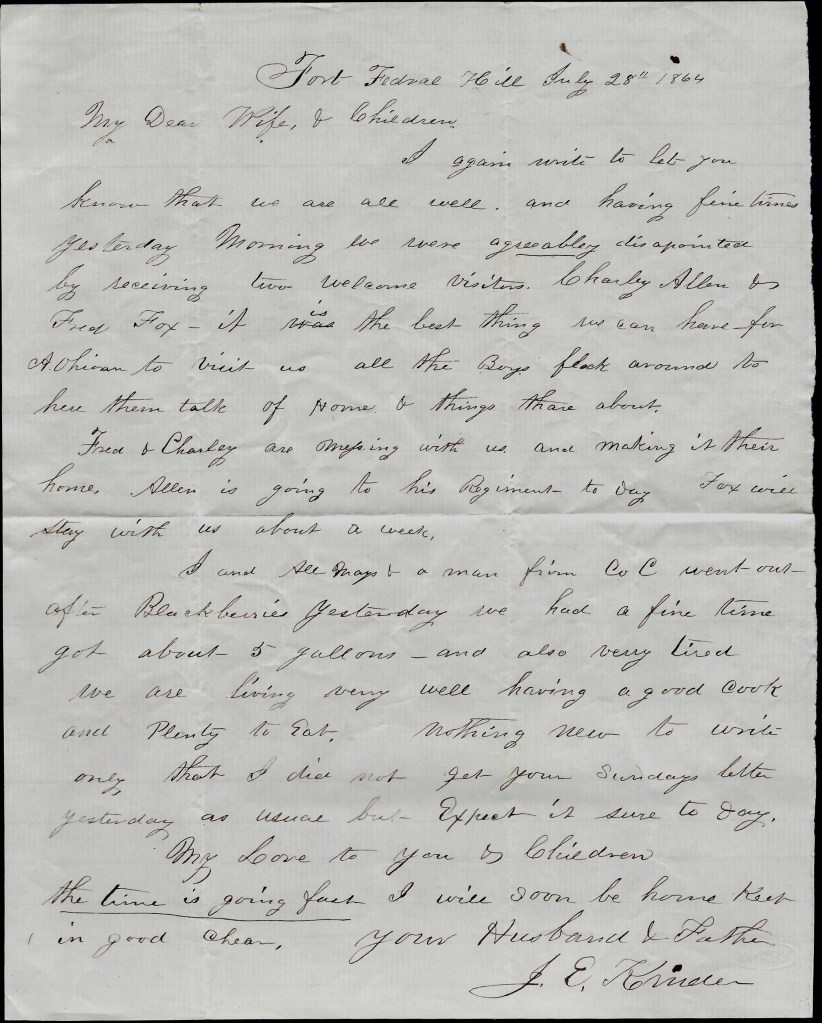 Fort Fedral Hill July 28th 1864
My Dear Wife, & Children
I again write to let you
know that we are all well. and having fine times
yesterday Morning we were agreeabley disapointed
by receiving two welcome visitors. Charley Allen &
Fred Fox - it was is the best thing we can have for
A. Ohioan to visit us all the Boys flock around to
here them talk of Home & things thare about.
Fred & Charley are Messing with us and making it their
home. Allen is going to his Regiment to day Fox will
stay with us about a week.
I and & a man from Co C went out
after Blackberries yesterday we had a fine time
got about 5 gallons - and also verry tired
we are living verry well having a good Cook
and Plenty to Eat. nothing new to write
only, that I did not get your Sundays letter
yesterday as usual but Expect it sure to day.
My Love to you & Children
the time is going fast I will soon be home Keep
in good Chear, your Husband & Father
J. E.